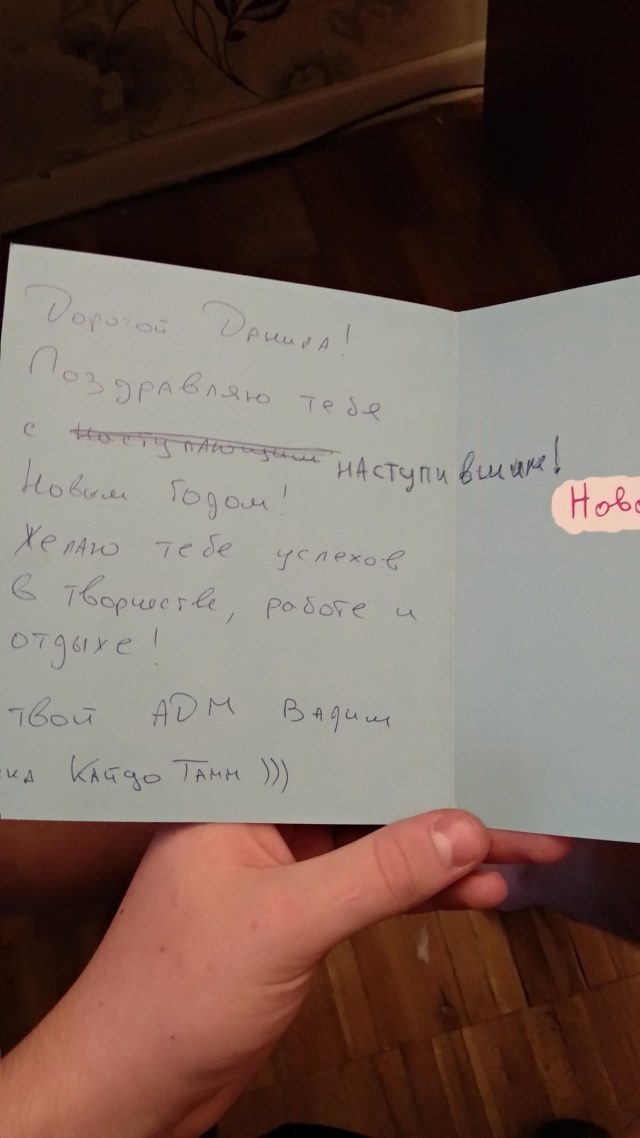 Дорогой Данила!
Поздравляю тебе
с наступающим наступившим!
Новым Годом!
Желаю тебе успехов
в творчестве, работе и
отдыхе!
твой АДМ Вадим
Кайдо Тамм )))
Ново